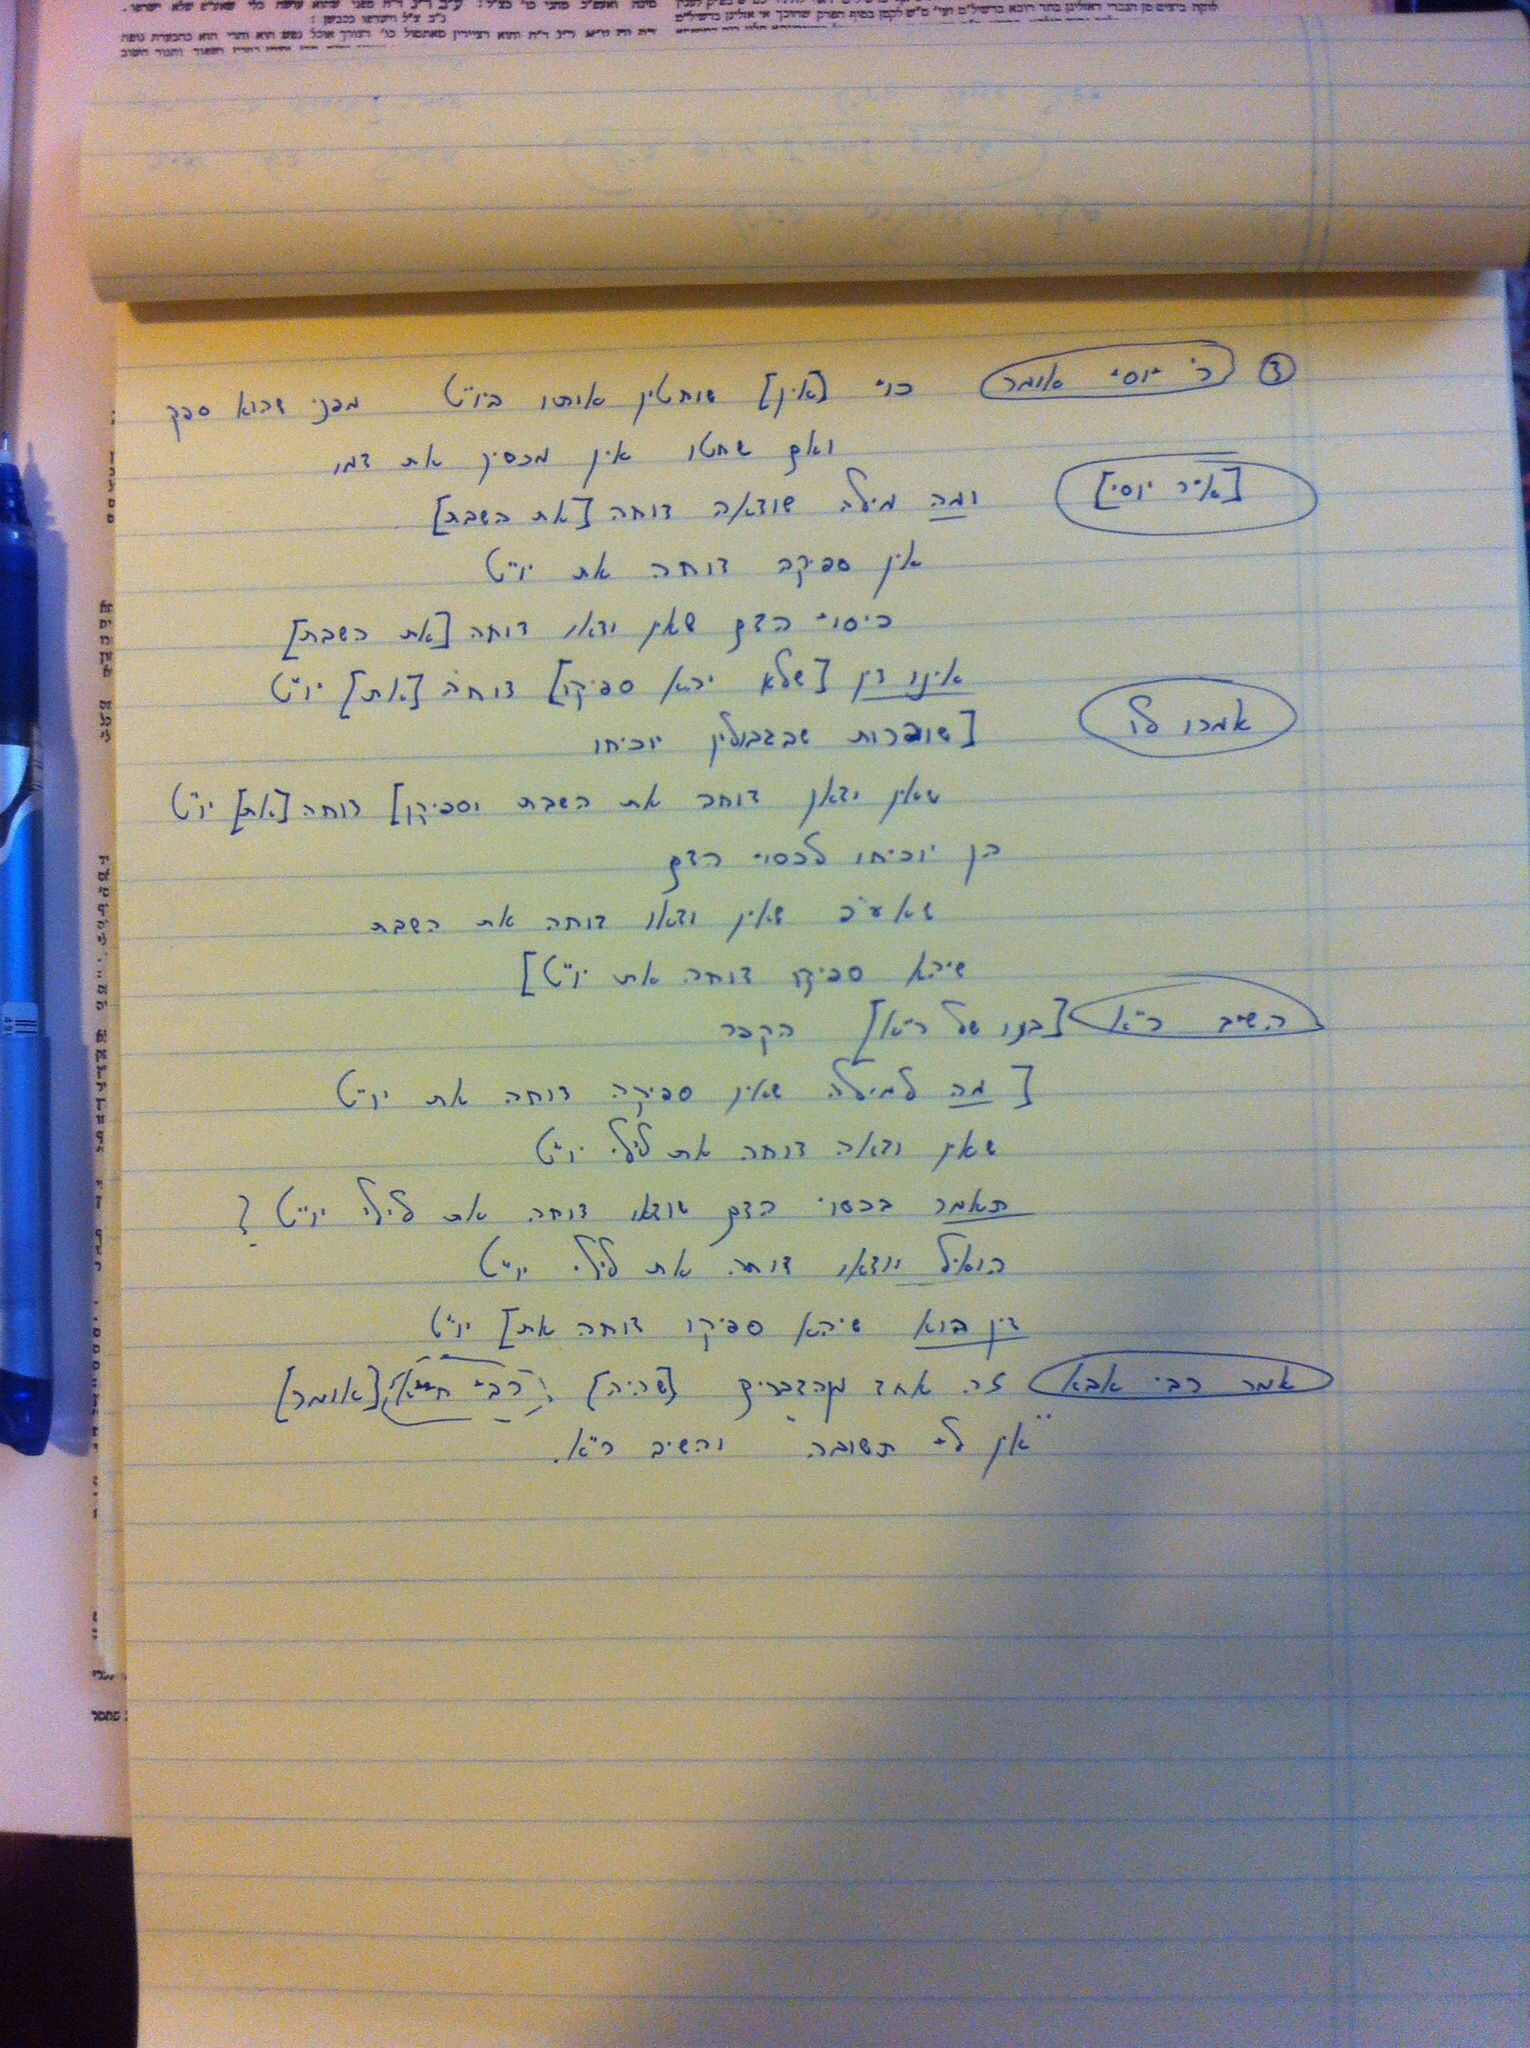 ③ ר' יוסי אומר כוי [אין] שוחטין אותו ביו"ט מפני שהוא ספק
ואם שחטו אין מכסין את דמו
[א"ר יוסי] ומה מילה שודאה דוחה [את השבת]
אין ספיקה דוחה את יו"ט
כיסוי הדם שאין ודאו דוחה [את השבת]
אינו דין [שלא יהא ספיקו] דוחה [את] יו"ט
אמרו לו [שופרות שבגבולין יוכיחו
שאין ודאן דוחה את השבת וספיקן] דוחה [את] יו"ט
הן יוכיחו לכסוי הדם
שאע"פ שאין ודאו דוחה את השבת
שיהא ספיקו דוחה את יו"ט]
השיב ר"א [בנו של ר"א] הקפר
[מה למילה שאין ספיקה דוחה את יו"ט
שאין ודאה דוחה את לילי יו"ט
תאמר בכסוי הדם שודאו דוחה את לילי יו"ט?
הואיל וודאו דוחה את לילי יו"ט
דין הוא שיהא ספיקו דוחה את] יו"ט
אמר רבי אבא זה אחד מהדברים [שהיה] רבי חייא [אומר]
"אין לי תשובה" והשיב ר"א.